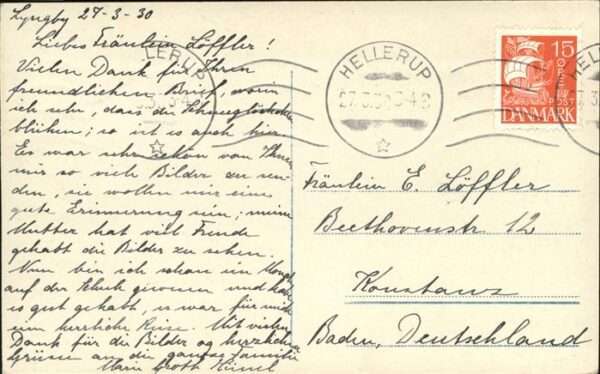 Lyngby 27-3-30
Liebes Fräulein Löffler!
Vielen Dank für Ihren
freundlichen Brief, worin
ich sehe, dass die Schneeglöckchen
blühen; so ist es auch hier.
Es war sehr schön von Ihnen
mir so viele Bilder zu sen-
den, sie wollen mir eine
gute Erinnerung sein; meine
Mutter hat viel Freude
gehabt die Bilder zu sehen.
Nun bin ich schon ein
auf der Schule gewesen und
es gut gehabt, es war für mich
eine herrliche Reise. Mit vielem
Dank für die Bilder og herzlichen
Grüsse an die ganze Familie
HELLERUP
27.3.30
15
ØRE
POST
DANMARK
Fräulein E. Löffler
Beethovenstr. 12
Konstanz
Baden, Deutschland